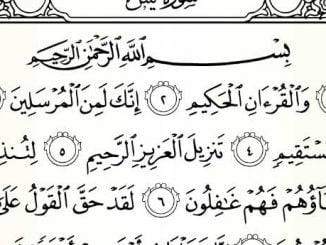 سورة يس
بِسْمِ اللَّهِ الرَّحْمَٰنِ الرَّحِيمِ
وَالْقُرْءَانِ الْحَكِيمِ ٢ إِنَّكَ لَمِنَ الْمُرْسَلِينَ
سْتَقِيمٍ ٤ تَنزِيلَ الْعَزِيزِ الرَّحِيمِ ٥ لِتُنذِ
ءَابَآؤُهُمْ فَهُمْ غَٰفِلُونَ ٦ لَقَدْ حَقَّ الْقَوْلُ عَلَىٰ